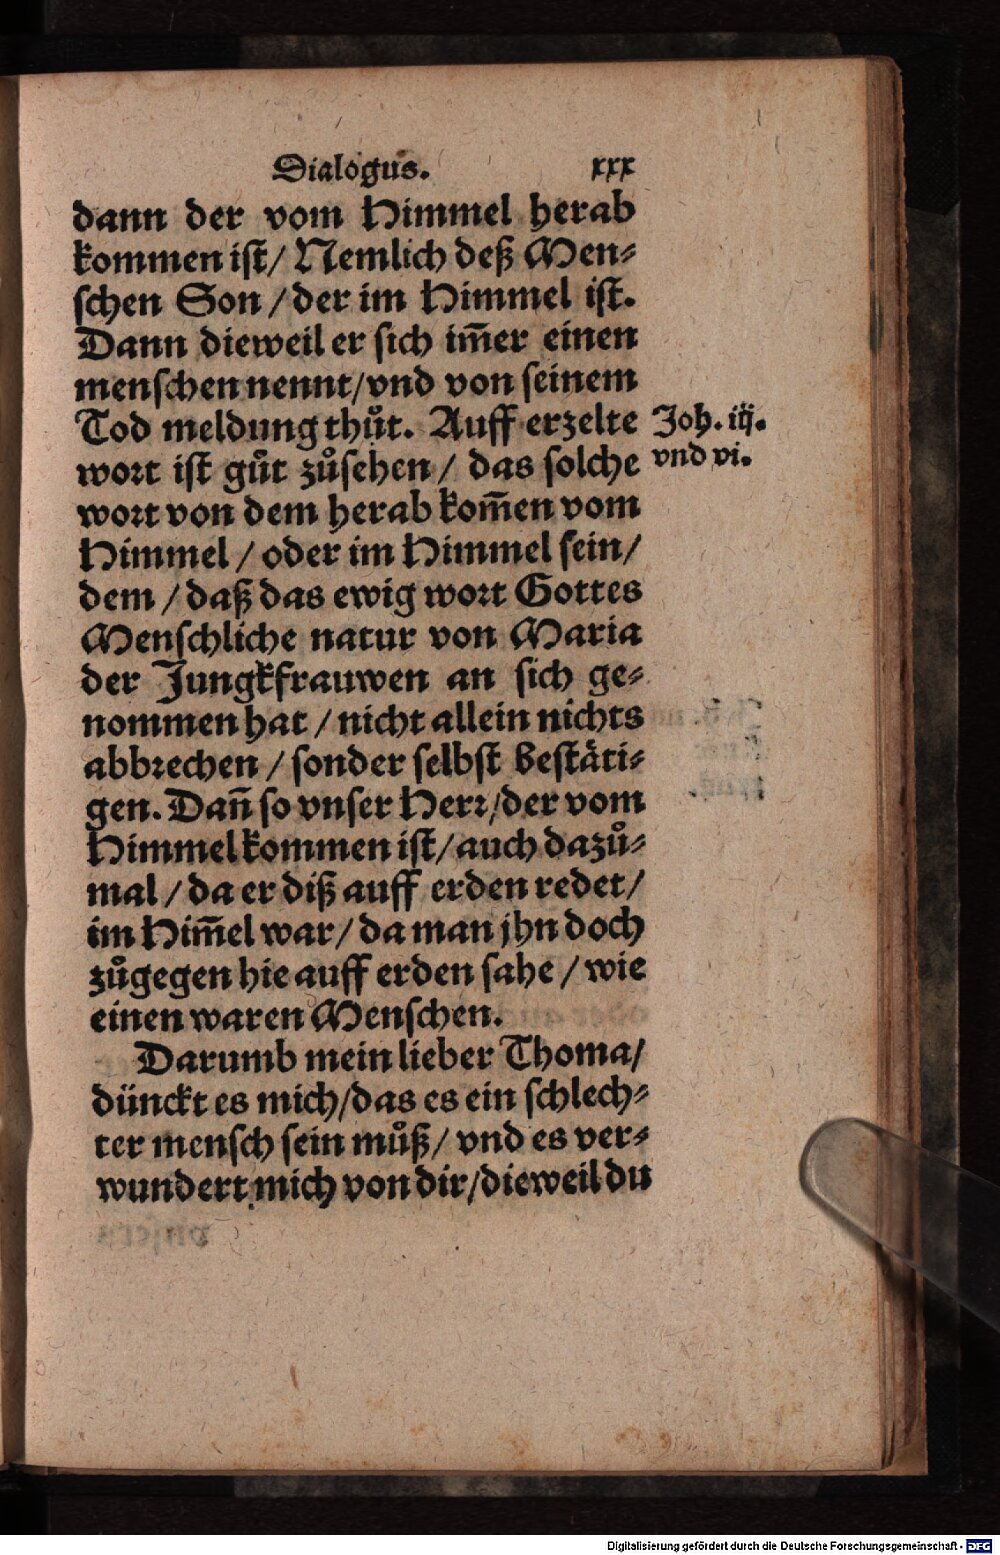 Dialogus. xxx
dann der vom Himmel herab
kommen ist/ Nemlich deß Men⸗
schen Son / der im Himmel ist.
Dann dieweil er sich im̄er einen
menschen nennt/vnd von seinem
Tod meldung thůt. Auff erzelte
Joh. iij.
wort ist gůt zůsehen / das solche
vnd vi.
wort von dem herab kom̄en vom
Himmel / oder im Himmel sein/
dem / daß das ewig wort Gottes
Menschliche natur von Maria
der Jungkfrauwen an sich ge⸗
nommen hat / nicht allein nichts
abbrechen / sonder selbst bestäti⸗
gen. Dañ so vnser Herr/der vom
Himmel kommen ist/auch dazů⸗
mal / da er diß auff erden redet/
im Him̄el war/ da man jhn doch
zůgegen hie auff erden sahe / wie
einen waren Menschen.
Darumb mein lieber Thoma/
dünckt es mich/das es ein schlech⸗
ter mensch sein můß/ vnd es ver⸗
wundert mich von dir/dieweil du
Digitalisierung gefördert durch die Deutsche Forschungsgemeinschaft - DFG